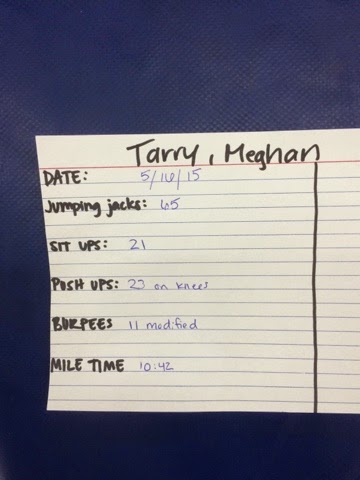 Tarry, Meghan
DATE: 5/16/15
Jumping jacks: 65
SIT UPS: 21
PUSH UPS: 23 on knees
BURPEES 11 modified
MILE TIME 10:42